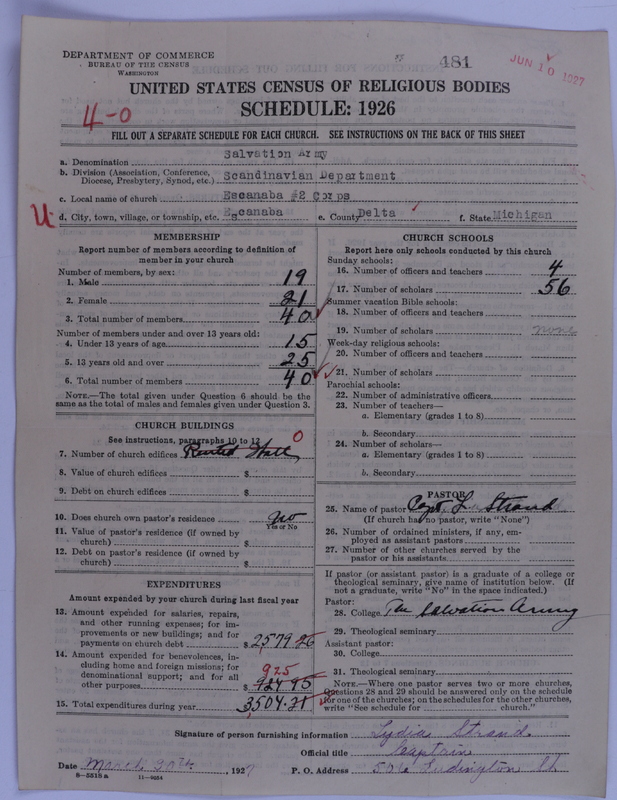 DEPARTMENT OF COMMERCE
BUREAU OF THE CENSUS
WASHINGTON
481
JUN 10 1927
UNITED STATES CENSUS OF RELIGIOUS BODIES
SCHEDULE: 1926
4-0
FILL OUT A SEPARATE SCHEDULE FOR EACH CHURCH. SEE INSTRUCTIONS ON THE BACK OF THIS SHEET
a. Denomination Salvation Army
b. Division (Association, Conference, Diocese, Presbytery, Synod, etc.) Scandinavian Department
c. Local name of church Escanaba #2 Corps
d. City, town, village, or township, etc. Escanaba e. County Delta f. State Michigan
MEMBERSHIP
Report number of members according to definition of
member in your church
Number of members, by sex:
1. Male 19
2. Female 21
3. Total number of members 40
Number of members under and over 13 years old:
4. Under 13 years of age 15
5. 13 years old and over 25
6. Total number of members 40
NOTE.—The total given under Question 6 should be
same as the total of males and females given under Question 3.
CHURCH BUILDINGS
See instructions, paragraphs 10 to 12
7. Number of church edifices Rented Hall 0
8. Value of church edifices $
9. Debt on church edifices $
10. Does church own pastor's residence no
Yes or No
11. Value of pastor's residence (if owned by
church) $
12. Debt on pastor's residence (if owned by
church) $
EXPENDITURES
Amount expended by your church during last fiscal year
13. Amount expended for salaries, repairs,
and other running expenses; for im-
provements or new buildings; and for
payments on church debt $ 2579.26
14. Amount expended for benevolences, in-
cluding home and foreign missions; for
denominational support; and for all
other purposes $ 924.95
925
15. Total expenditures during year 3,504.21
CHURCH SCHOOLS
Report here only schools conducted by this church
Sunday schools:
16. Number of officers and teachers 4
17. Number of scholars 56
Summer vacation Bible schools:
18. Number of officers and teachers
19. Number of scholars none
Week-day religious schools:
20. Number of officers and teachers
21. Number of scholars
Parochial schools:
22. Number of administrative officers
23. Number of teachers—
a. Elementary (grades 1 to 8)
b. Secondary
24. Number of scholars—
a. Elementary (grades 1 to 8)
b. Secondary
PASTOR
25. Name of pastor Capt L. Strand
(If church has no pastor, write "None")
26. Number of ordained ministers, if any, em-
ployed as assistant pastors
27. Number of other churches served by the
pastor or his assistants
If pastor (or assistant pastor) is a graduate of a college or
theological seminary, give name of institution below. (If
not a graduate, write "No" in the space indicated.)
Pastor:
28. College The Salvation Army
29. Theological seminary
Assistant pastor:
30. College
31. Theological seminary
NOTE.—Where one pastor serves two or more churches,
Questions 28 and 29 should be answered only on the schedule
for one of the churches; on the schedules for the other churches,
write "See schedule for church."
Signature of person furnishing information Lydia Strand
Official title Captain
Date March 30th, 1927 P. O. Address 506 Ludington St.
8—5518 a 11—9654